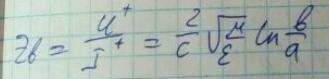 Zв = U⁺/I⁺ = 2/c √(μ/ε) ln b/a